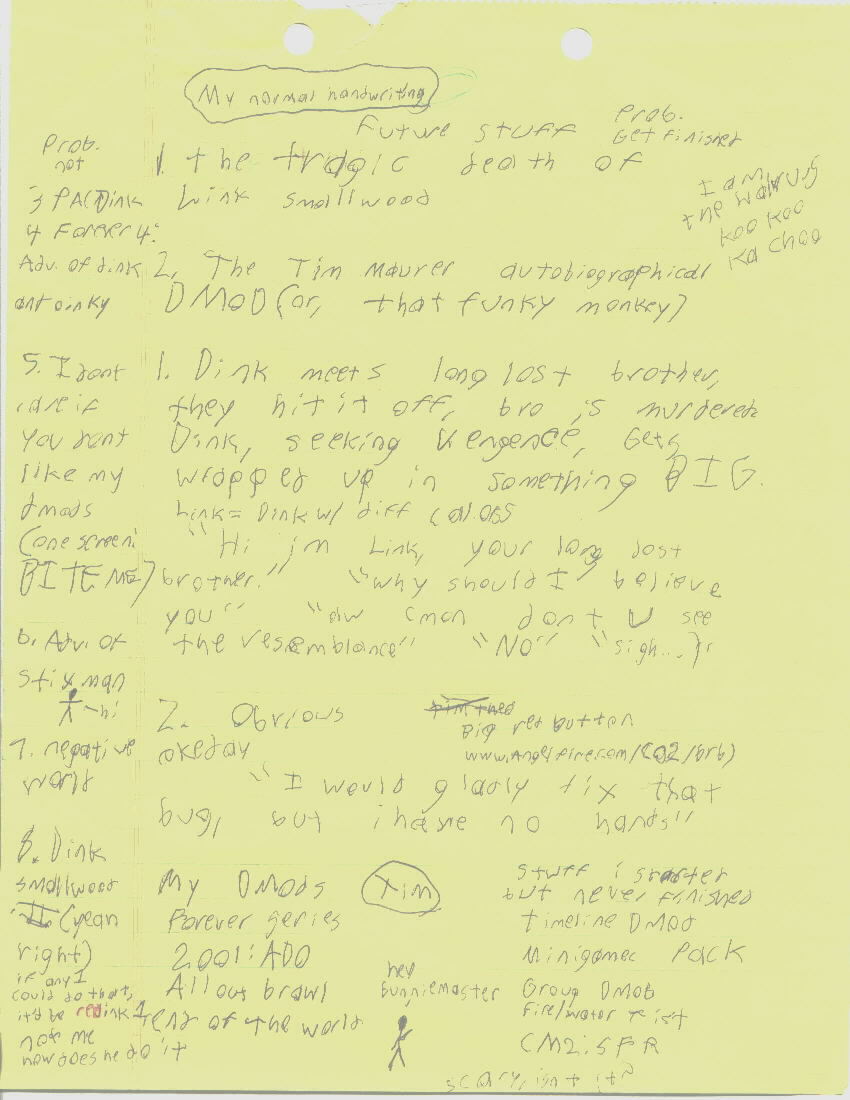 My normal handwriting
Future stuff
Prob.
Get finished
1. the tragic death of
Link smallwood
I am
the walrus
koo koo
ka choo
2. The Tim Maurer autobiographical
DMOD (or, that funky monkey)
1. Dink meets long lost brother,
they hit it off, bro is murdered
Dink, seeking vengence, Gets
wrapped up in something BIG.
Link = Dink w/ diff colors
"Hi im Link, your long lost
brother." "why should I believe
you" "aw cmon dont U see
the resemblance" "No" "sigh...
2. Obvious
Big red button
okeday
www.Angelfire.com/CO2/brb)
"I would gladly fix that
bug, but i have no hands"
My DMods
Forever series
2001: ADO
All out brawl
End of the world
Tim
hey
Bunniemaster
stuff i started
but never finished
timeline DMod
Minigamec Pack
Group DMOD
Fire/Water
CM2:SFR
scary, isnt it?
Prob.
not
3 PACDink
4 Forever 4:
Adv. of dink
and oinky
5. I dont
care if
you dont
like my
dmods
(one screen:
BITE ME)
6. Adv. of
stixman
hi
7. negative
world
8. Dink
smallwood
II (yeah
right)
if any 1
could do that,
itd be redink1
not me
how does he do it